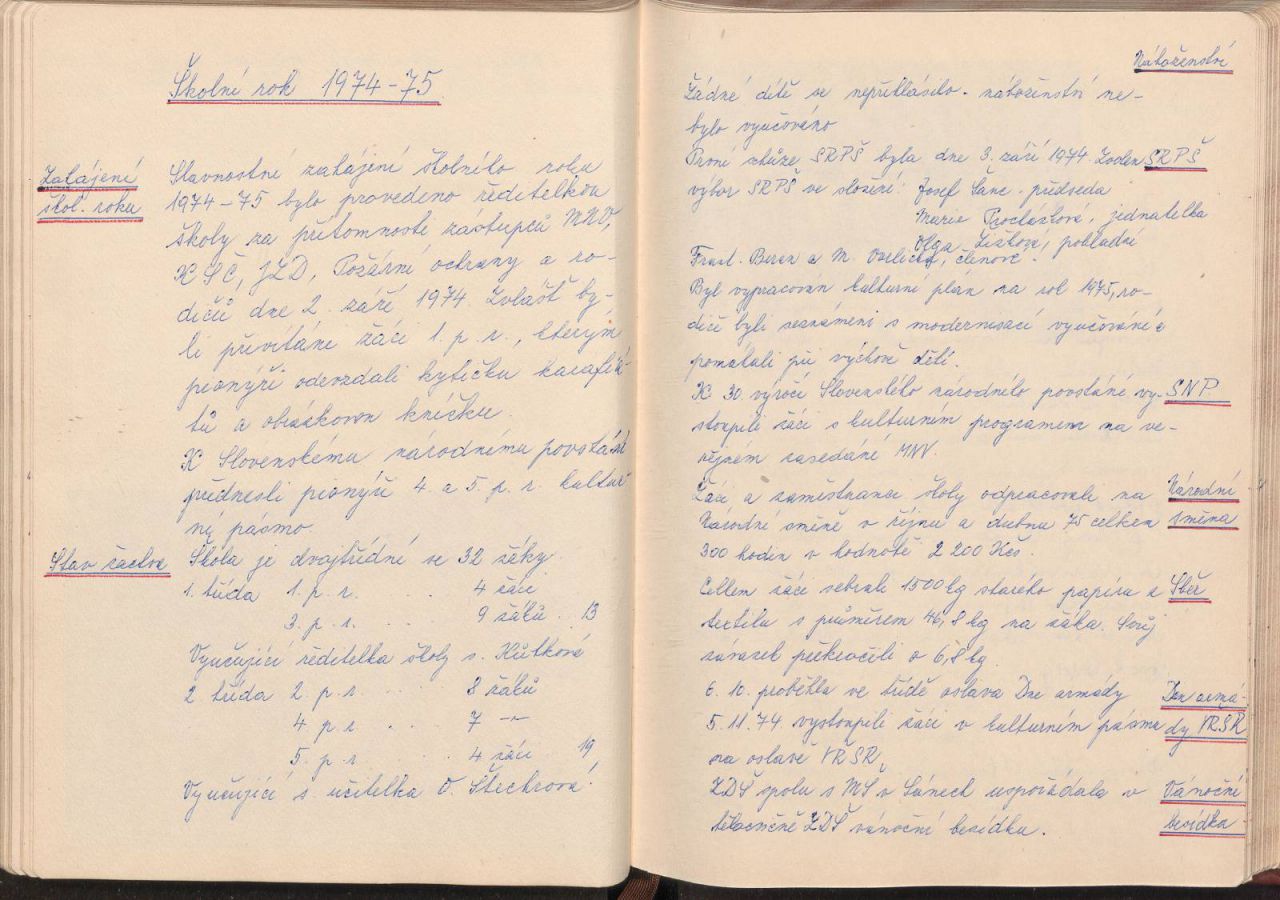 Školní rok 1974-75
Zahájení
škol. roku
Slavnostní zahájení školního roku
1974-75 bylo provedeno ředitelkou
školy za přítomnosti zástupců MNV,
KSČ, JZD, Požární ochrany a ro-
dičů dne 2. září 1974. Zvlášť by-
li přivítáni žáci 1. p. r., kterým
pionýři odevzdali kytičku karafiá-
tů a obrázkovou knížku.
K Slovenskému národnímu povstání
přednesli pionýři 4. a 5. p. r. kultur-
ní pásmo.
Stav žactva
Škola je dvojtřídní se 32 žáky.
1. třída 1. p. r. . . . 4 žáci
3. p. r. . . . 9 žáků 13
Vyučující ředitelka školy s. Kůtková
2 třída 2. p. r. . . . 8 žáků
4. p. r. . . . 7 -"-
5. p. r. . . . 4 žáci 19
Vyučující s. učitelka O. Štechrová.
Náboženství
Žádné dítě se nepřihlásilo - náboženství ne-
bylo vyučováno
První schůze SRPŠ byla dne 3. září 1974 Zvolen SRPŠ
výbor SRPŠ ve složení: Josef Šanc - předseda
Marie Procházková, jednatelka
Olga Zišková, pokladní
Frant. Beran a M. členové.
Byl vypracován kulturní plán na rok 1975, ro-
diče byli seznámeni s modernisací vyučování a
pomáhali při výchově dětí.
K 30. výročí Slovenského národního povstání vy- SNP
stoupili žáci s kulturním programem na ve-
řejném zasedání MNV.
Žáci a zaměstnanci školy odpracovali na Národní
Národní směně v říjnu a dubnu 75 celkem směna
300 hodin v hodnotě 2 200 Kčs.
Celkem žáci sebrali 1500 kg starého papíru a Sběr
textilu s průměrem 46,8 kg na žáka. Svůj
závazek překročili o 6,8 kg.
6. 10. proběhla ve třídě oslava Dne armády Den armá-
5. 11. 74 vystoupili žáci v kulturním pásmu dy VŘSR
na oslavě VŘSR.
ZDŠ spolu s MŠ v Sánech uspořádala v Vánoční
tělocvičně ZDŠ vánoční besídku. besídka